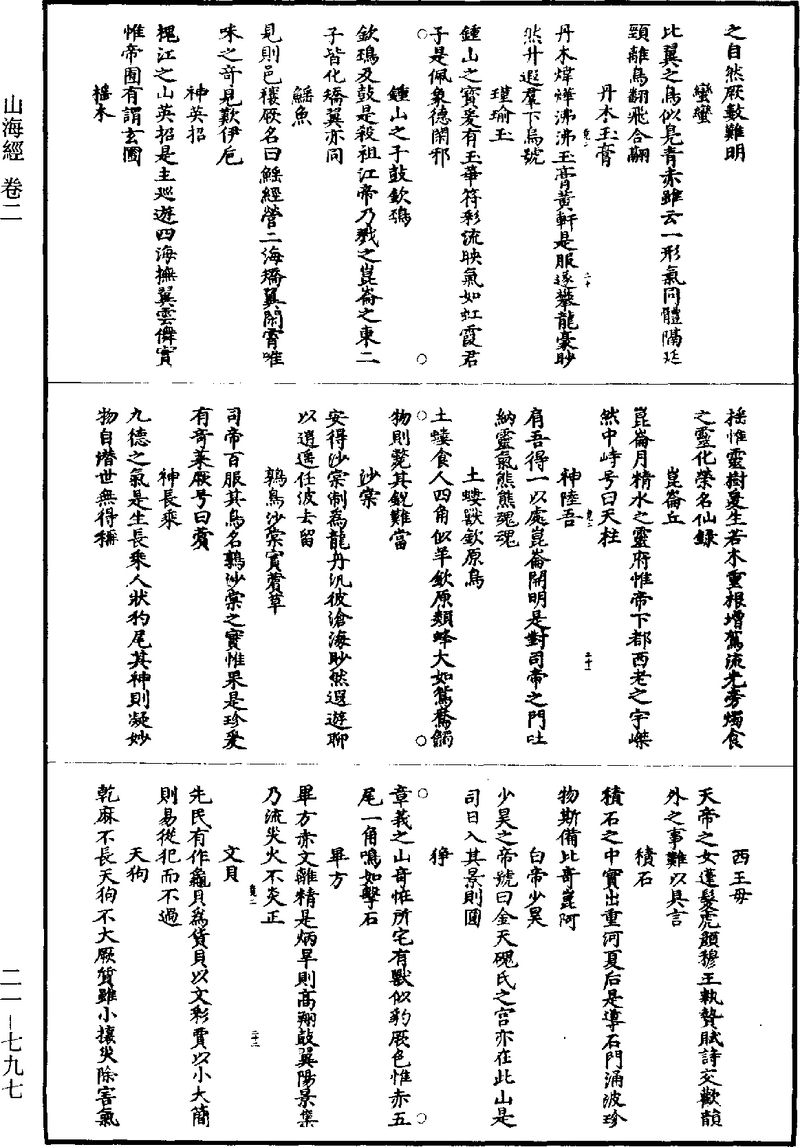 之自然厥數難明
蠻蠻
比翼之鳥似鳧青赤雖云一形氣同體隔延
頸離鳥翻飛合翮
丹木玉膏
丹木煒燁沸沸玉膏黃軒是服遂攀龍豪眇
然升遐羣下烏號
瑾瑜玉
鍾山之寶爰有玉華符彩流映氣如虹霞君
子是佩象德閑邪
鍾山之子鼓欽䲹
欽䲹及鼓是殺祖江帝乃戮之崑崙之東二
子皆化矯翼亦同
鰩魚
見則邑穰厥名曰鰩經營二海矯翼閑霄唯
味之奇見歎伊庖
神英招
槐江之山英招是主巡遊四海撫翼雲儛實
惟帝囿有謂玄圃
榣木
榣惟靈樹爰生若木重根增駕流光旁燭食
之靈化榮名仙錄
崑崙丘
崑崙月精水之靈府惟帝下都西老之宇嶸
然中峙号曰天柱
神陸吾
肩吾得一以處崑崙開明是對司帝之門吐
納靈氣熊熊魂魂
土螻獸欽原鳥
土螻食人四角似羊欽原類蜂大如鴛鴦觸
物則斃其銳難當
沙棠
安得沙棠制為龍舟汎彼滄海眇然遐遊聊
以逍遙任波去留
鶉鳥沙棠實薲草
司帝百服其鳥名鶉沙棠之實惟果是珍爰
有奇菜厥号曰薲
神長乘
九德之氣是生長乘人狀犳尾其神則凝妙
物自潛世無得稱
西王母
天帝之女蓬髮虎顏穆王執贄賦詩交歡韻
外之事難以具言
積石
積石之中實出重河夏后是導石門涌波珍
物斯備比奇崑阿
白帝少昊
少昊之帝號曰金天磈氏之宮亦在此山是
司日入其景則圓
猙
章莪之山奇怪所宅有獸似豹厥色惟赤五
尾一角鳴如擊石
畢方
畢方赤文離精是炳旱則高翔鼓翼陽景集
乃流災火不炎正
文貝
先民有作龜貝為貨貝以文彩賈以小大簡
則易從犯而不過
天狗
乾麻不長天狗不大厥質雖小攘災除害氣
山海經 卷二
二一—七九七
二十
二十一
二十二